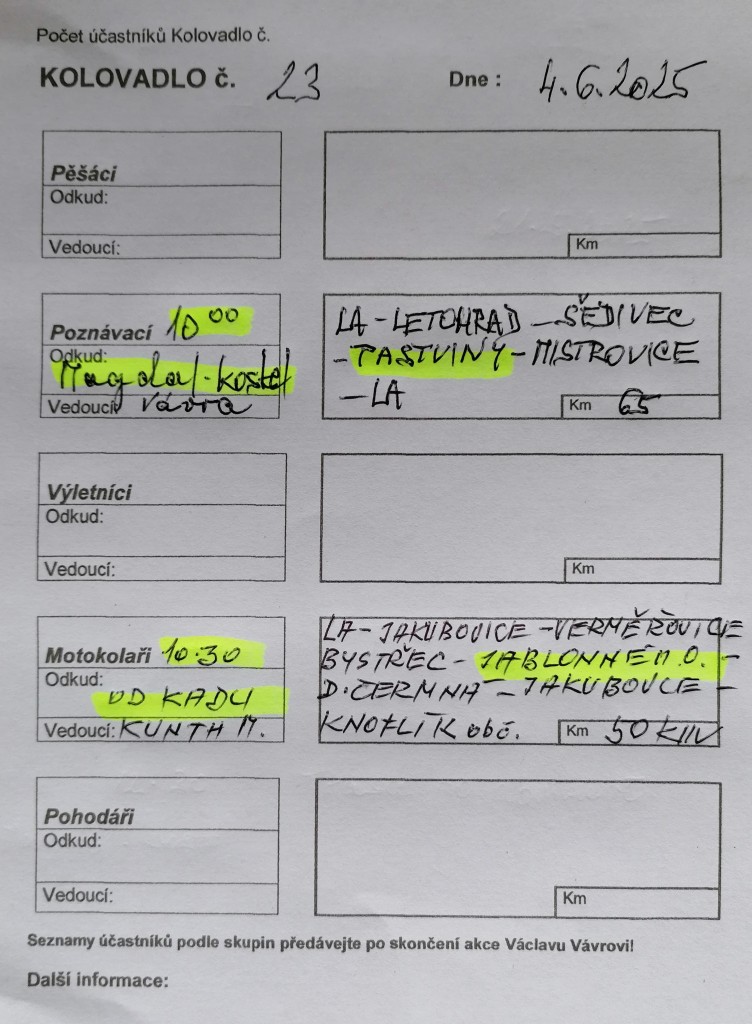 Počet účastníků Kolovadlo č.
KOLOVADLO č. 23 Dne : 4.6.2025
Pěšáci
Odkud:
Vedoucí:
Km
Poznávací 10 00
Odkud:
Magdal. kostel
Vedoucí: Vávra
LA - LETOHRAD - ŠEDIVEC
- PASTVINY - MISTROVICE
- LA
Km 65
Výletníci
Odkud:
Vedoucí:
Km
Motokolaři 10.30
Odkud:
OD KADU
Vedoucí: KUNTH M.
LA - JAKUBOVICE - VERMĚŘOVICE
BYSTŘEC - JABLONNÉ n.O. -
D.ČERMNA - JAKUBOVICE -
KNOFLÍK obč.
Km 50 KM
Pohodáři
Odkud:
Vedoucí:
Km
Seznamy účastníků podle skupin předávejte po skončení akce Václavu Vávrovi!
Další informace: